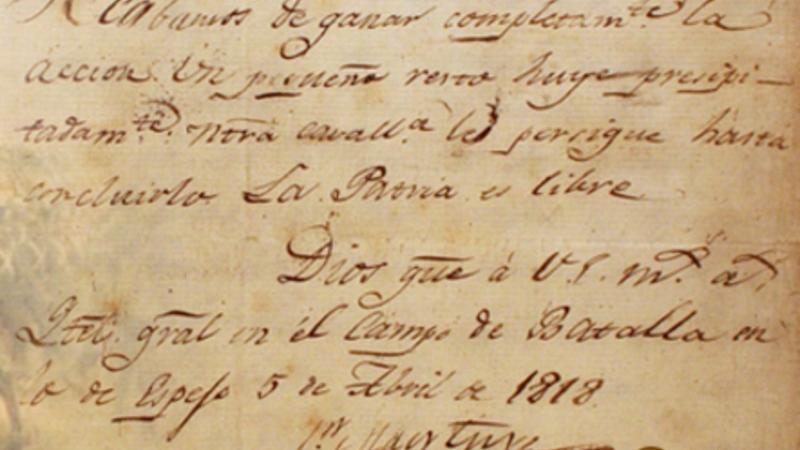 Acabamos de ganar completam.te la
accion. Un pequeño resto huye presipi-
tadam.te. Ntra cavall.a lo persigue hasta
concluirlo. La Patria es libre
Dios gue á V.E. m.s a.s
Qtel. gral en el Campo de Batalla en
lo de Espejo 5 de Abril de 1818